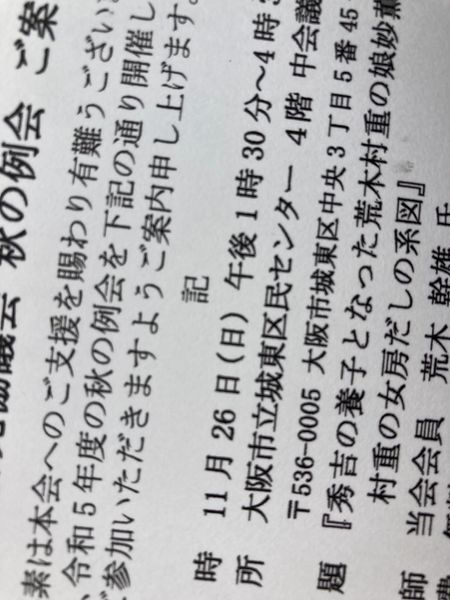 協議会 秋の例会 ご案
素は本会へのご支援を賜わり有難うござい
、令和5年度の秋の例会を下記の通り開催し
ご参加いただきますようご案内申し上げます。
記
時 11月26日(日) 午後1時30分~4時
所 大阪市立城東区民センター 4階 中会議
〒536-0005 大阪市城東区中央3丁目5番45
題 『秀吉の養子となった荒木村重の娘妙薫
村重の女房だしの系図』
師 当会会員 荒木 幹雄 氏
費 無料